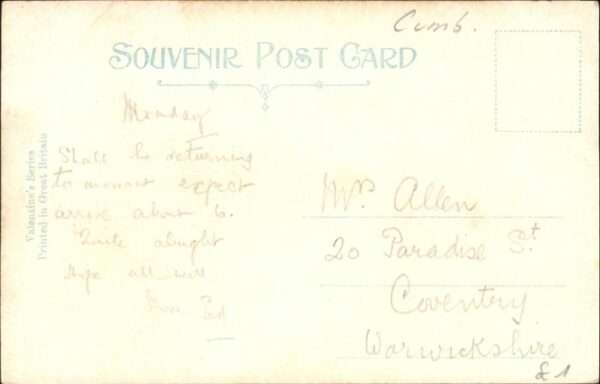 Cumb.
SOUVENIR POST CARD
Valentine's Series
Printed in Great Britain
Monday
Shall be returning
to morrow expect
arrive about 6.
Quite alright
Hope all well
from
Mrs Allen
20 Paradise St.
Coventry
Warwickshire
£1